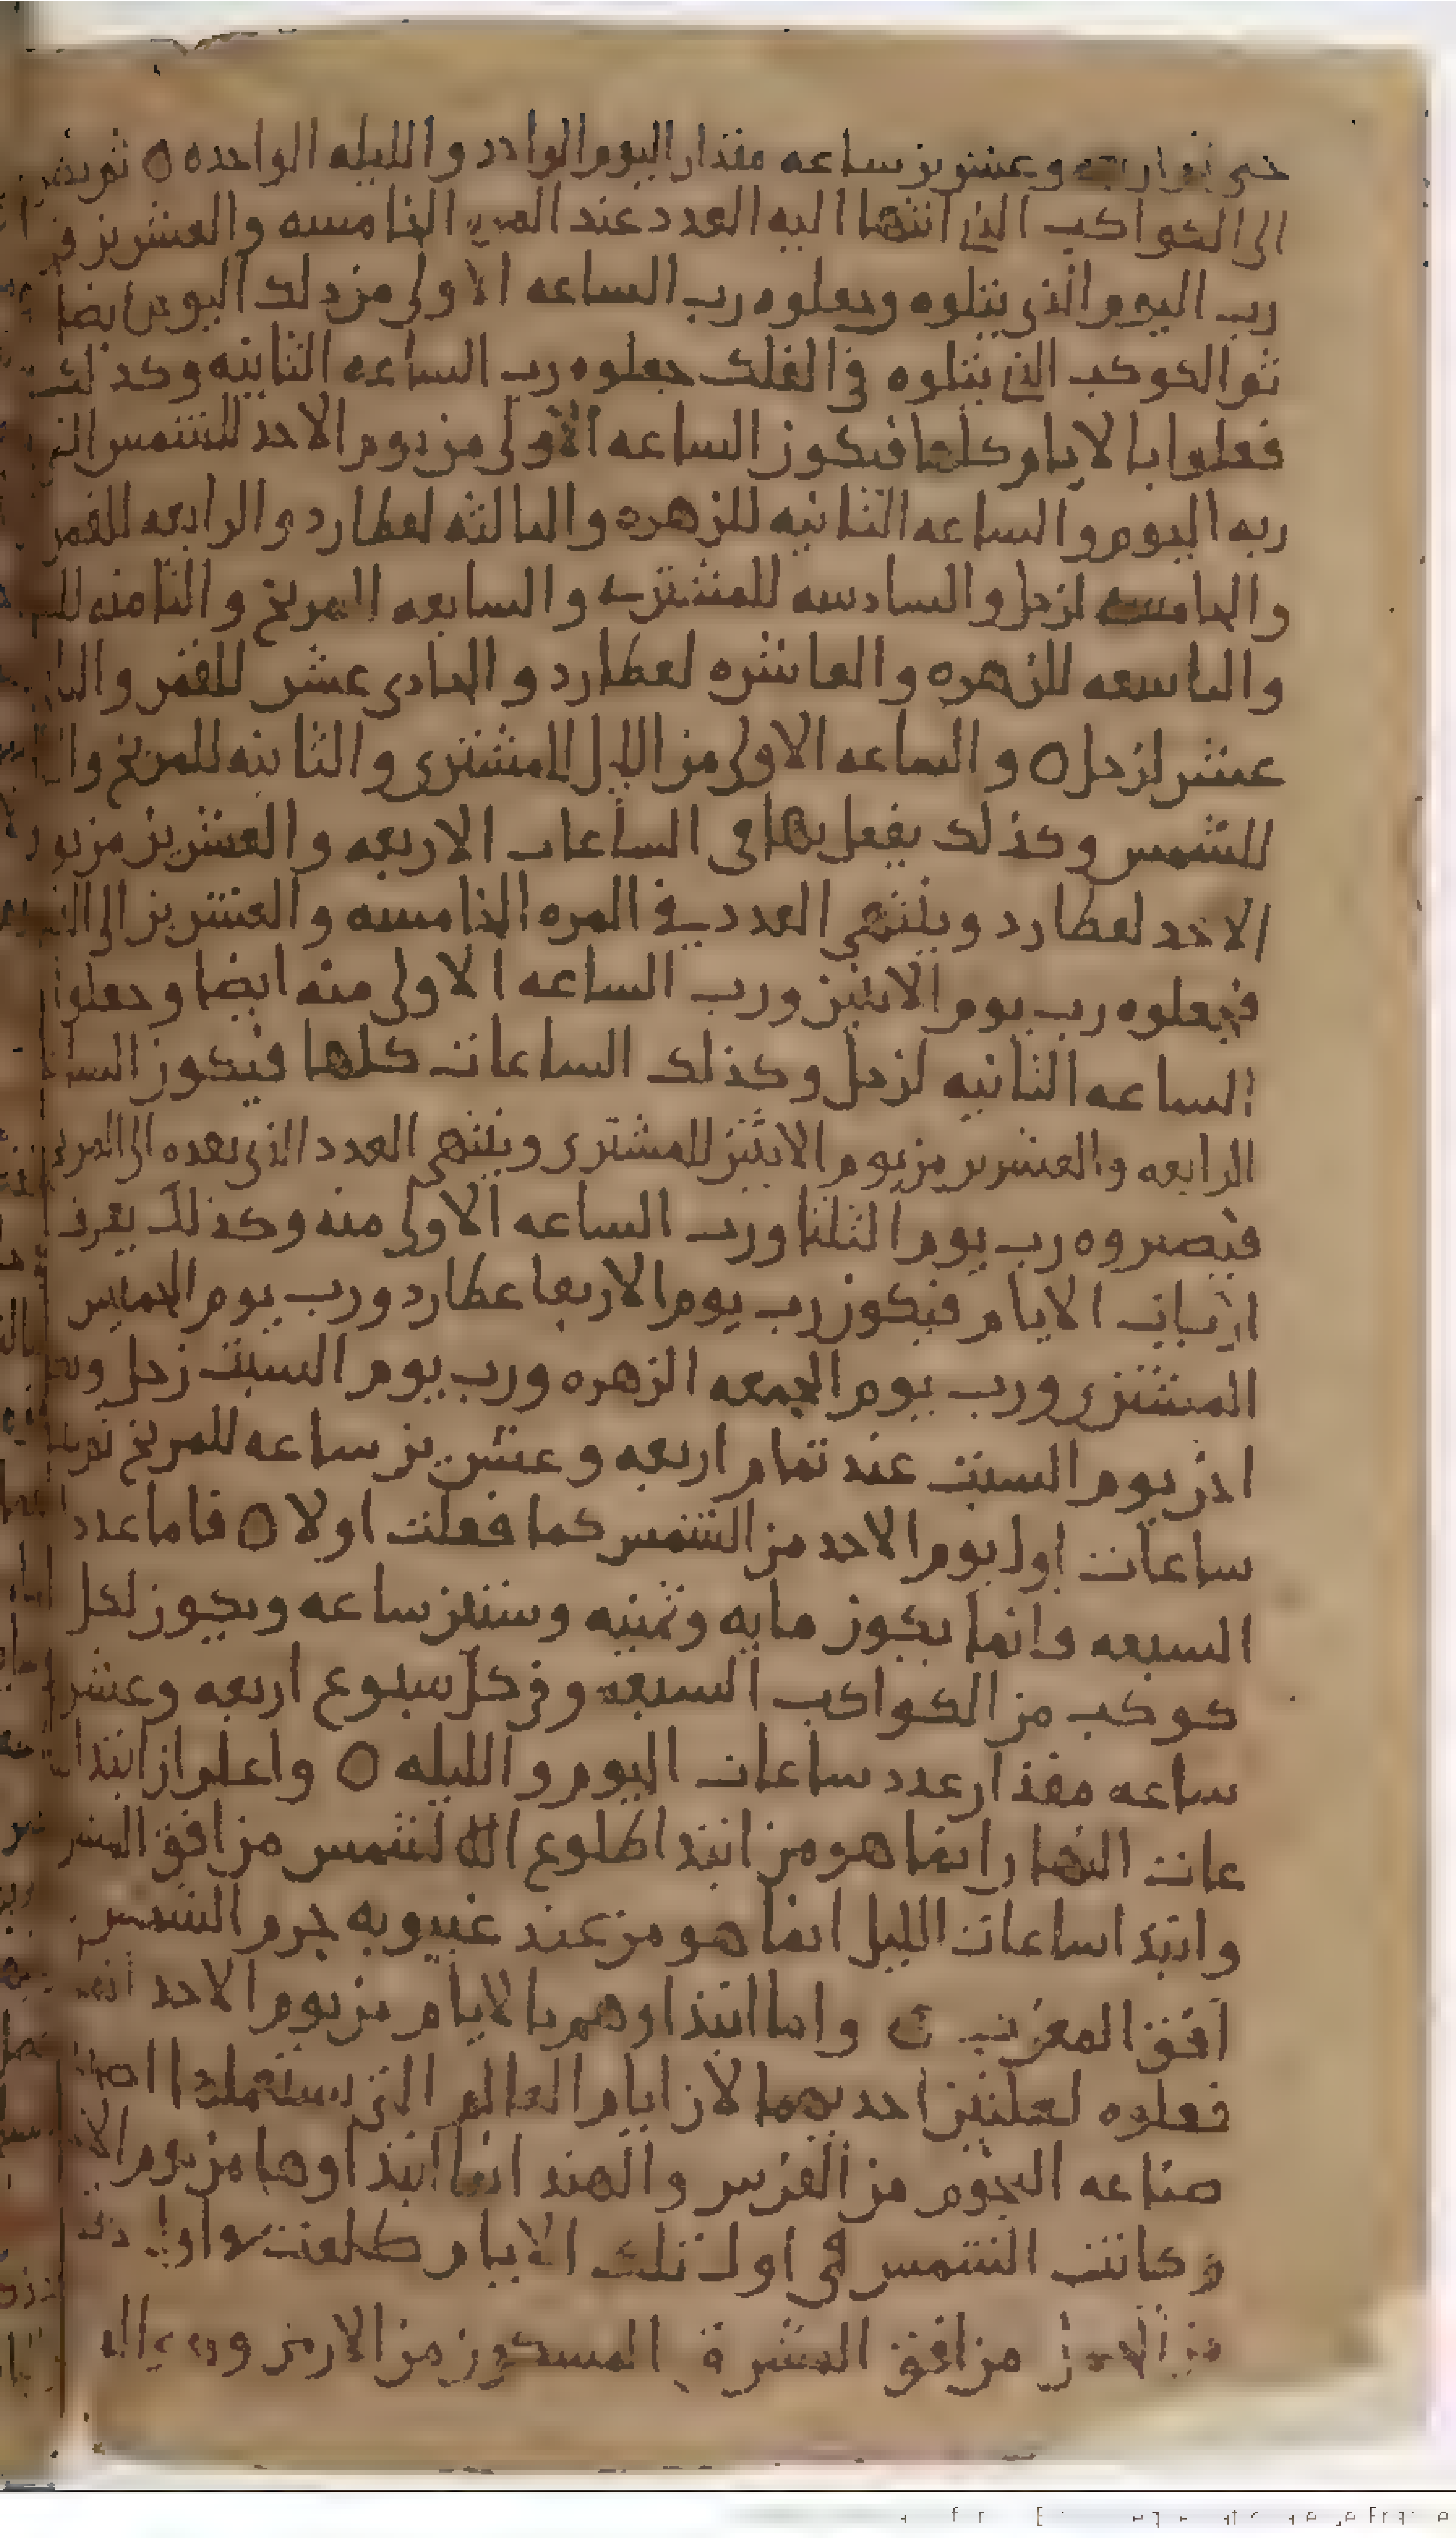 حتى تتم اربعه وعشرين ساعه مقدار اليوم الواحد والليله الواحده ه ثم
الى الكواكب الذي انتها اليه العدد عند المره الخامسه والعشرين
رب اليوم الذي يتلوه وجعلوه رب الساعه الاولى من ذلك اليوم ايضا
ثم الكوكب الذي يتلوه في الفلك جعلوه رب الساعه الثانيه وكذلك
فعلوا بالايام كلها فيكون الساعه الاولى من يوم الاحد للشمس التي
ربه اليوم والساعه الثانيه للزهره والثالثه لعطارد والرابعه للقمر
والخامسه لزحل والسادسه للمشتري والسابعه المريخ والثامنه
والتاسعه للزهره والعاشره لعطارد والحادي عشر للقمر
عشر لزحل ه والساعه الاولى من الليل للمشتري والثانيه للمريخ
للشمس وكذلك يفعل بها في الساعات الاربعه والعشرين من يوم
الاحد لعطارد وينتهي العدد في المره الخامسه والعشرين الى
فيجعلوه رب يوم الاثنين ورب الساعه الاولى منه ايضا وجعلوا
الساعه الثانيه لزحل وكذلك الساعات كلها فيكون
الرابعه والعشرين من يوم الاثنين للمشتري وينتهي العدد الذي بعده الى المريخ
فيصيروه رب يوم الثلثا ورب الساعه الاولى منه وكذلك يعرف
ارباب الايام فيكون رب يوم الاربعا عطارد ورب يوم الخميس
المشتري ورب يوم الجمعه الزهره ورب يوم السبت زحل
اخر يوم السبت عند تمام اربعه وعشرين ساعه للمريخ
ساعات اول يوم الاحد من الشمس كما فعلت اولا ه فاما عدد
السبعه وانما يكون مايه وثمنيه وستين ساعه ويكون لكل
كوكب من الكواكب السبعه وفي كل سبوع اربعه وعشر
ساعه مقدار عدد ساعات اليوم والليله ه واعلم ان ابتدا
عات النهار انما هو من ابتدا طلوع الشمس من افق
وابتدا ساعات الليل انما هو من عند غيبوبه جرم الشمس
افق المغرب ه واما ابتداوهم بالايام من يوم الاحد
فعلوه لعلتين احديهما لان ايام العالم التي يستعملها
صناعه النجوم من الفرس والهند انما ابتداوها من يوم
وكانت الشمس في اول تلك الايام طلعت
من افق المشرق المسكون من الارض